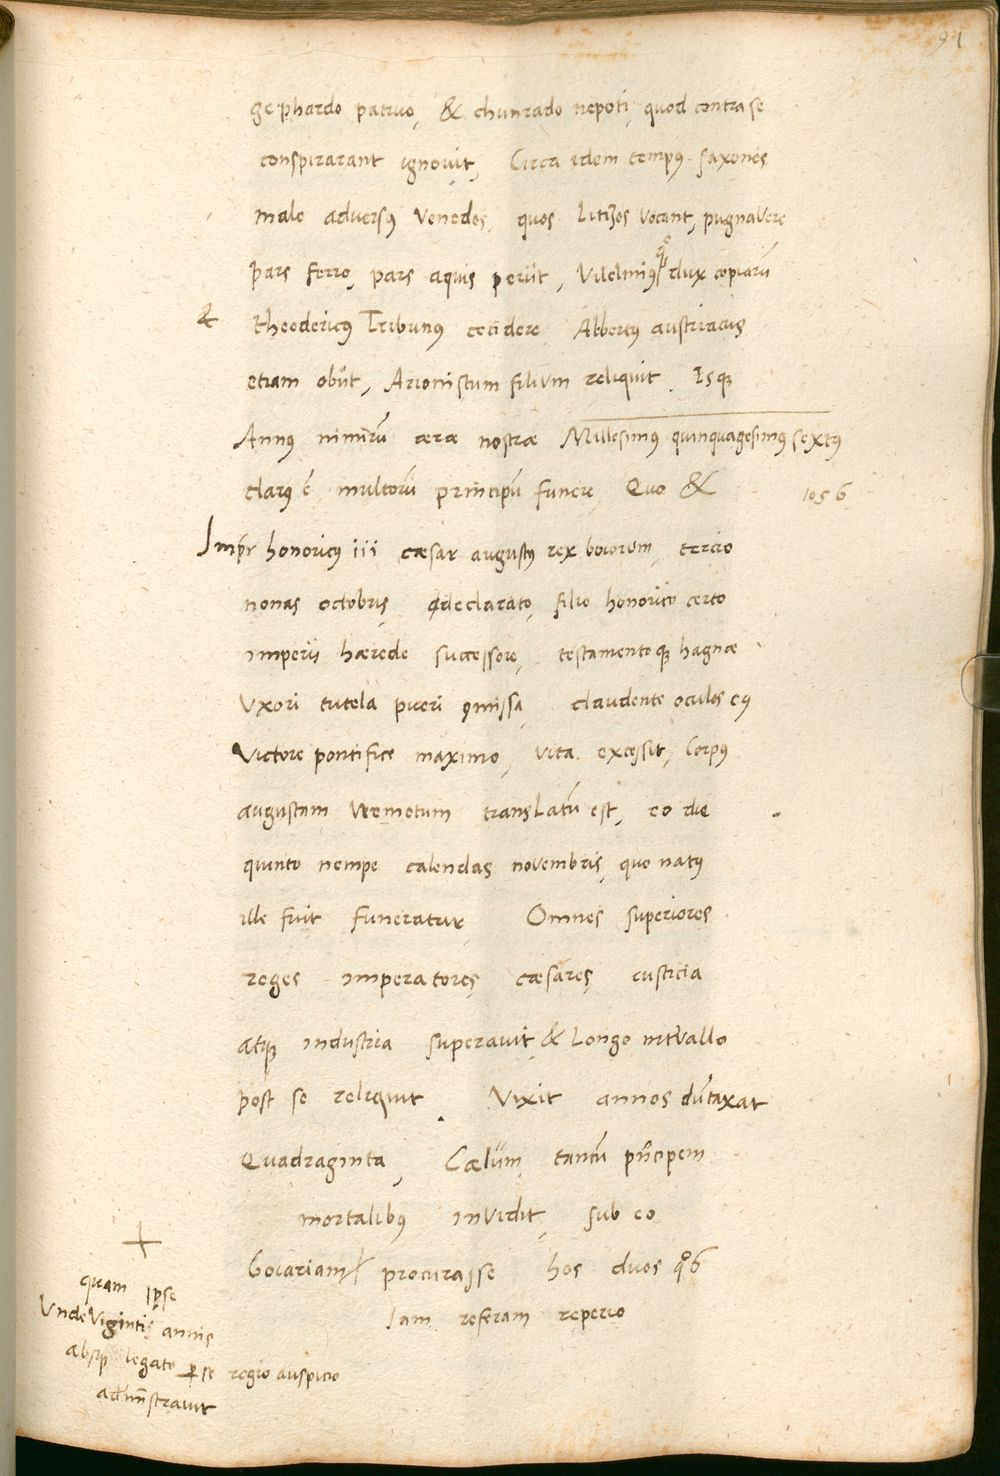 91
gephardo patruo, & chunrado nepoti, quod contra se
conspirarant ignovit, Circa idem tempꝰ saxones
male adversꝰ Venedos, quos Litizos vocant, pugnavere
pars ferro, pars aquis periit, Vilelmꝰ qͦꝫ dux copiarū
& theodericꝰ Tribunꝰ cecidere Albertꝰ austriacus
etiam obiit, Arionistum filium reliquit, Isqꝫ
Annꝰ nimirū æræ nostræ Millesimꝰ quinquagesimꝰ sextꝰ
clarꝰ ē, multorū principū funere, Quo &
1056
Impr̄ honoricꝰ iii cæsar augustꝰ rex boiorum, tercio
nonas octobris, declarato, filio honorico certo
imperii hærede successore, testamentoqꝫ hagnæ
Uxori tutela pueri ꝯmissa, claudente oculos eiꝰ
Victore pontifice maximo, vita excessit, Corpꝰ
augustam Vemetum translatū est, eo die
quinto nempe calendas novembris, quo natꝰ
ille fuit funeratur Omnes superiores
reges imperatores, cæsares, iusticia
atqꝫ industria superavit, & Longo intervallo
post se reliquit Vixit annos dūtaxat
Quadraginta, Cælum tantū pn̄cipem
mortalibꝰ invidit, sub eo
boiariam procurasse hos duos qͦꝫ
Iam referam reperio
quam ipse
Undeviginti annis
absqꝫ legato ꝑ se regio auspicio
admīstravit